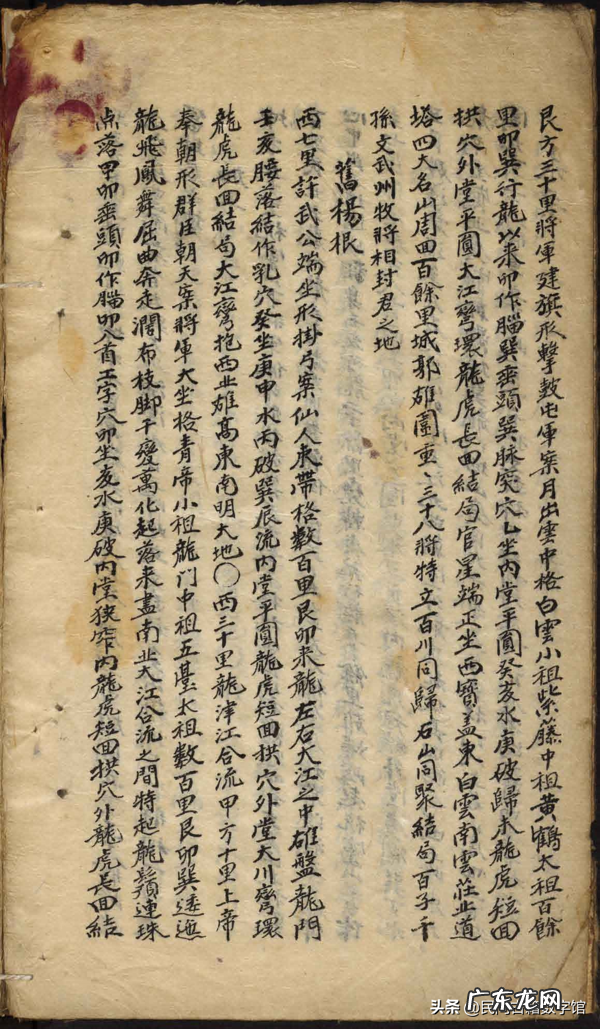 艮方三十里將軍建旗形擊鼓屯軍案月出雲中格白雲小祖紫藤中祖黃鶴太祖百餘
里卯巽行龍以来卯作腦巽垂頭巽脉突穴乙坐內堂平圓癸亥水庚破歸未龍虎短回
拱穴外堂平圓大江彎環龍虎長回結局官星端正坐西寶盖東白雲南雲莊北道
塔四大名山周回百餘里城郭雄圍重、三十八將特立百川同歸石山同聚結局百子千
孫文武州牧將相封君之地
舊楊根
西七里許武公端坐形掛弓案仙人束帶格數百里艮卯来龍左右大江之中雄盤龍門
壬亥腰落結作乳穴癸坐庚申水丙破巽辰流內堂平圓龍虎短回拱穴外堂大川彎環
龍虎長回結局大江彎抱西北雄高東南明大地○西三十里龍津江合流甲方十里上帝
奉朝形群臣朝天案將軍大坐格青帝小祖龍门中祖五臺太祖數百里艮卯巽逶迤
龍飛鳳舞屈曲奔走濶布枝脚千變萬化起落来盡南北大江合流之間特起龍鬚連珠
点落甲卯垂頭卯作腦卯入首工字穴卯坐亥水庚破內堂狹窄內龍虎短回拱穴外龍虎長回結
头条 @民间古籍数字馆
广东龙网